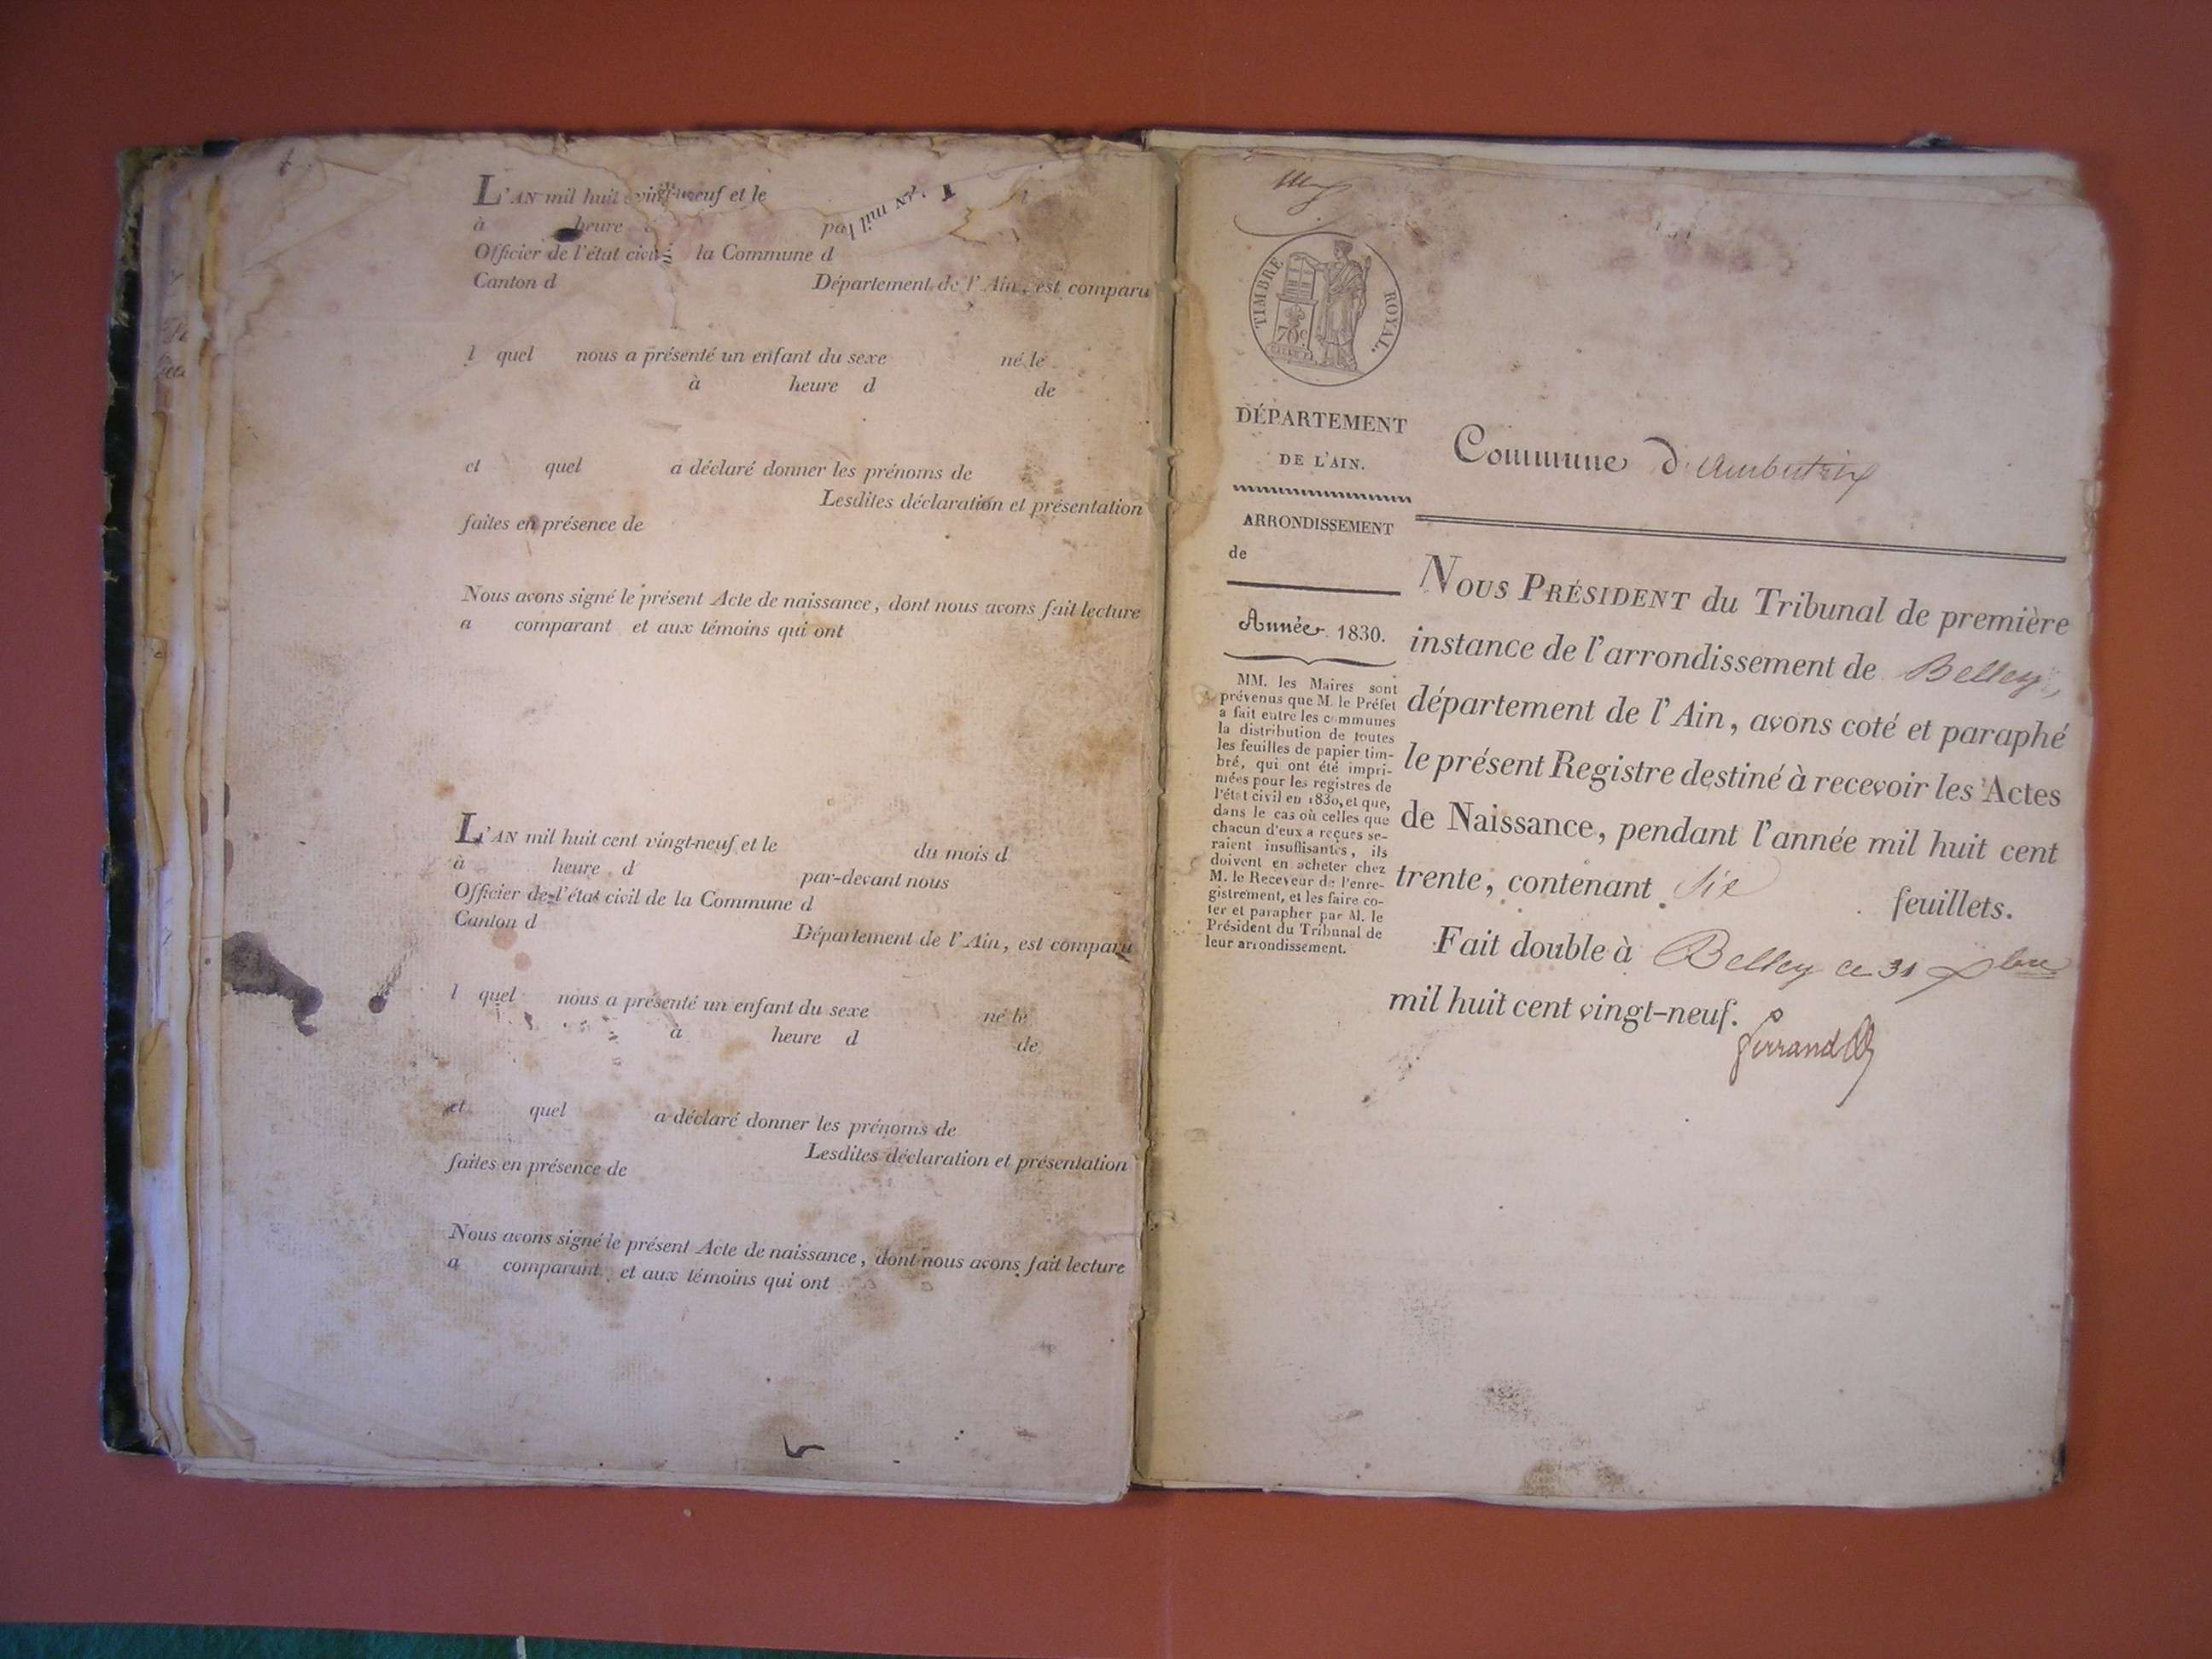 L'AN mil huit vingt-neuf et le
L'AN mil
à heure pa
Officier de l'état civil la Commune d
Canton d Département de l'Ain, est comparu
l quel nous a présenté un enfant du sexe né le
à heure d de
et quel a déclaré donner les prénoms de
Lesdites déclaration et présentation
faites en présence de
Nous avons signé le présent Acte de naissance, dont nous avons fait lecture
a comparant et aux témoins qui ont
L'AN mil huit cent vingt-neuf et le du mois d
à heure d par-devant nous
Officier de l'état civil de la Commune d
Canton d Département de l'Ain, est comparu
l quel nous a présenté un enfant du sexe né le
à heure d de
et quel a déclaré donner les prénoms de
Lesdites déclaration et présentation
faites en présence de
Nous avons signé le présent Acte de naissance, dont nous avons fait lecture
a comparant et aux témoins qui ont
TIMBRE ROYAL.
70c.
DÉPARTEMENT
DE L'AIN.
Commune d'Ambutrix
ARRONDISSEMENT
de
Année 1830.
MM. les Maires sont
prévenus que M. le Préfet
a fait entre les communes
la distribution de toutes
les feuilles de papier tim-
bré, qui ont été impri-
mées pour les registres de
l'état civil en 1830, et que,
dans le cas où celles que
chacun d'eux a reçues se-
raient insuffisantes, ils
doivent en acheter chez
M. le Receveur de l'enre-
gistrement, et les faire co-
ter et parapher par M. le
Président du Tribunal de
leur arrondissement.
NOUS PRÉSIDENT du Tribunal de première
instance de l'arrondissement de Belley,
département de l'Ain, avons coté et paraphé
le présent Registre destiné à recevoir les Actes
de Naissance, pendant l'année mil huit cent
trente, contenant Six feuillets.
Fait double à Belley ce 31 Xbre
mil huit cent vingt-neuf.
ferrand